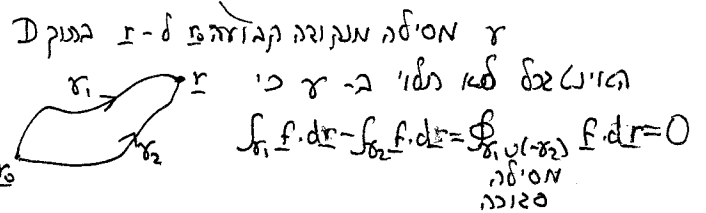 γ מסילה מנקודה קבועה r₀ ל- r בתוך D
האינטגרל לא תלוי ב- γ כי
γ₁ r
∫γ₁ f·dr - ∫γ₂ f·dr = ∮γ₁∪(-γ₂) f·dr = 0
γ₂
r₀
מסילה
סגורה